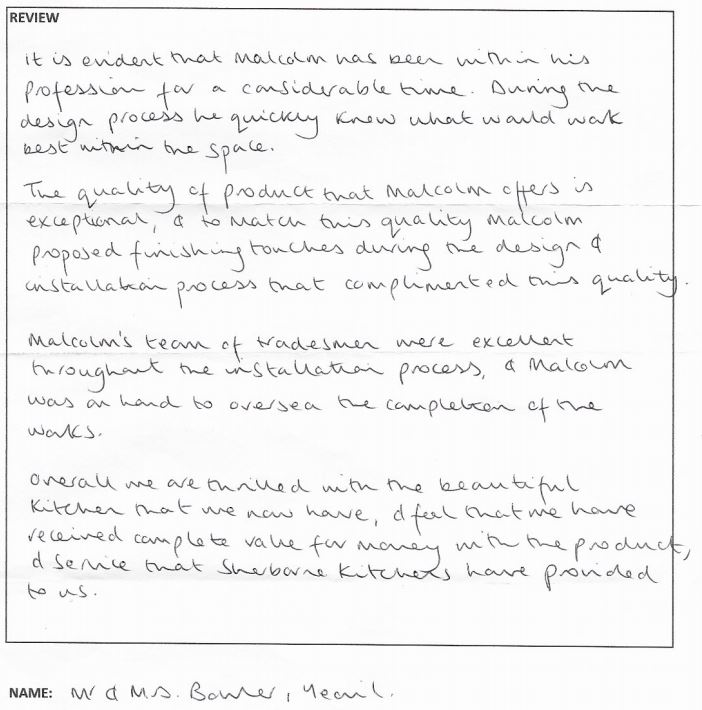 REVIEW
it is evident that Malcolm has been within his
profession for a considerable time. During the
design process he quickly knew what would work
best within the space.
The quality of product that Malcolm offers is
exceptional, & to match this quality Malcolm
proposed finishing touches during the design &
installation process that complimented this quality.
Malcolm's team of tradesmen were excellent
throughout the installation process, & Malcolm
was on hand to oversea the completion of the
works.
Overall we are thrilled with the beautiful
kitchen that we now have, & feel that we have
received complete value for money with the product,
& service that Sherborne Kitchens have provided
to us.
NAME: Mr & Mrs. Yeovil.